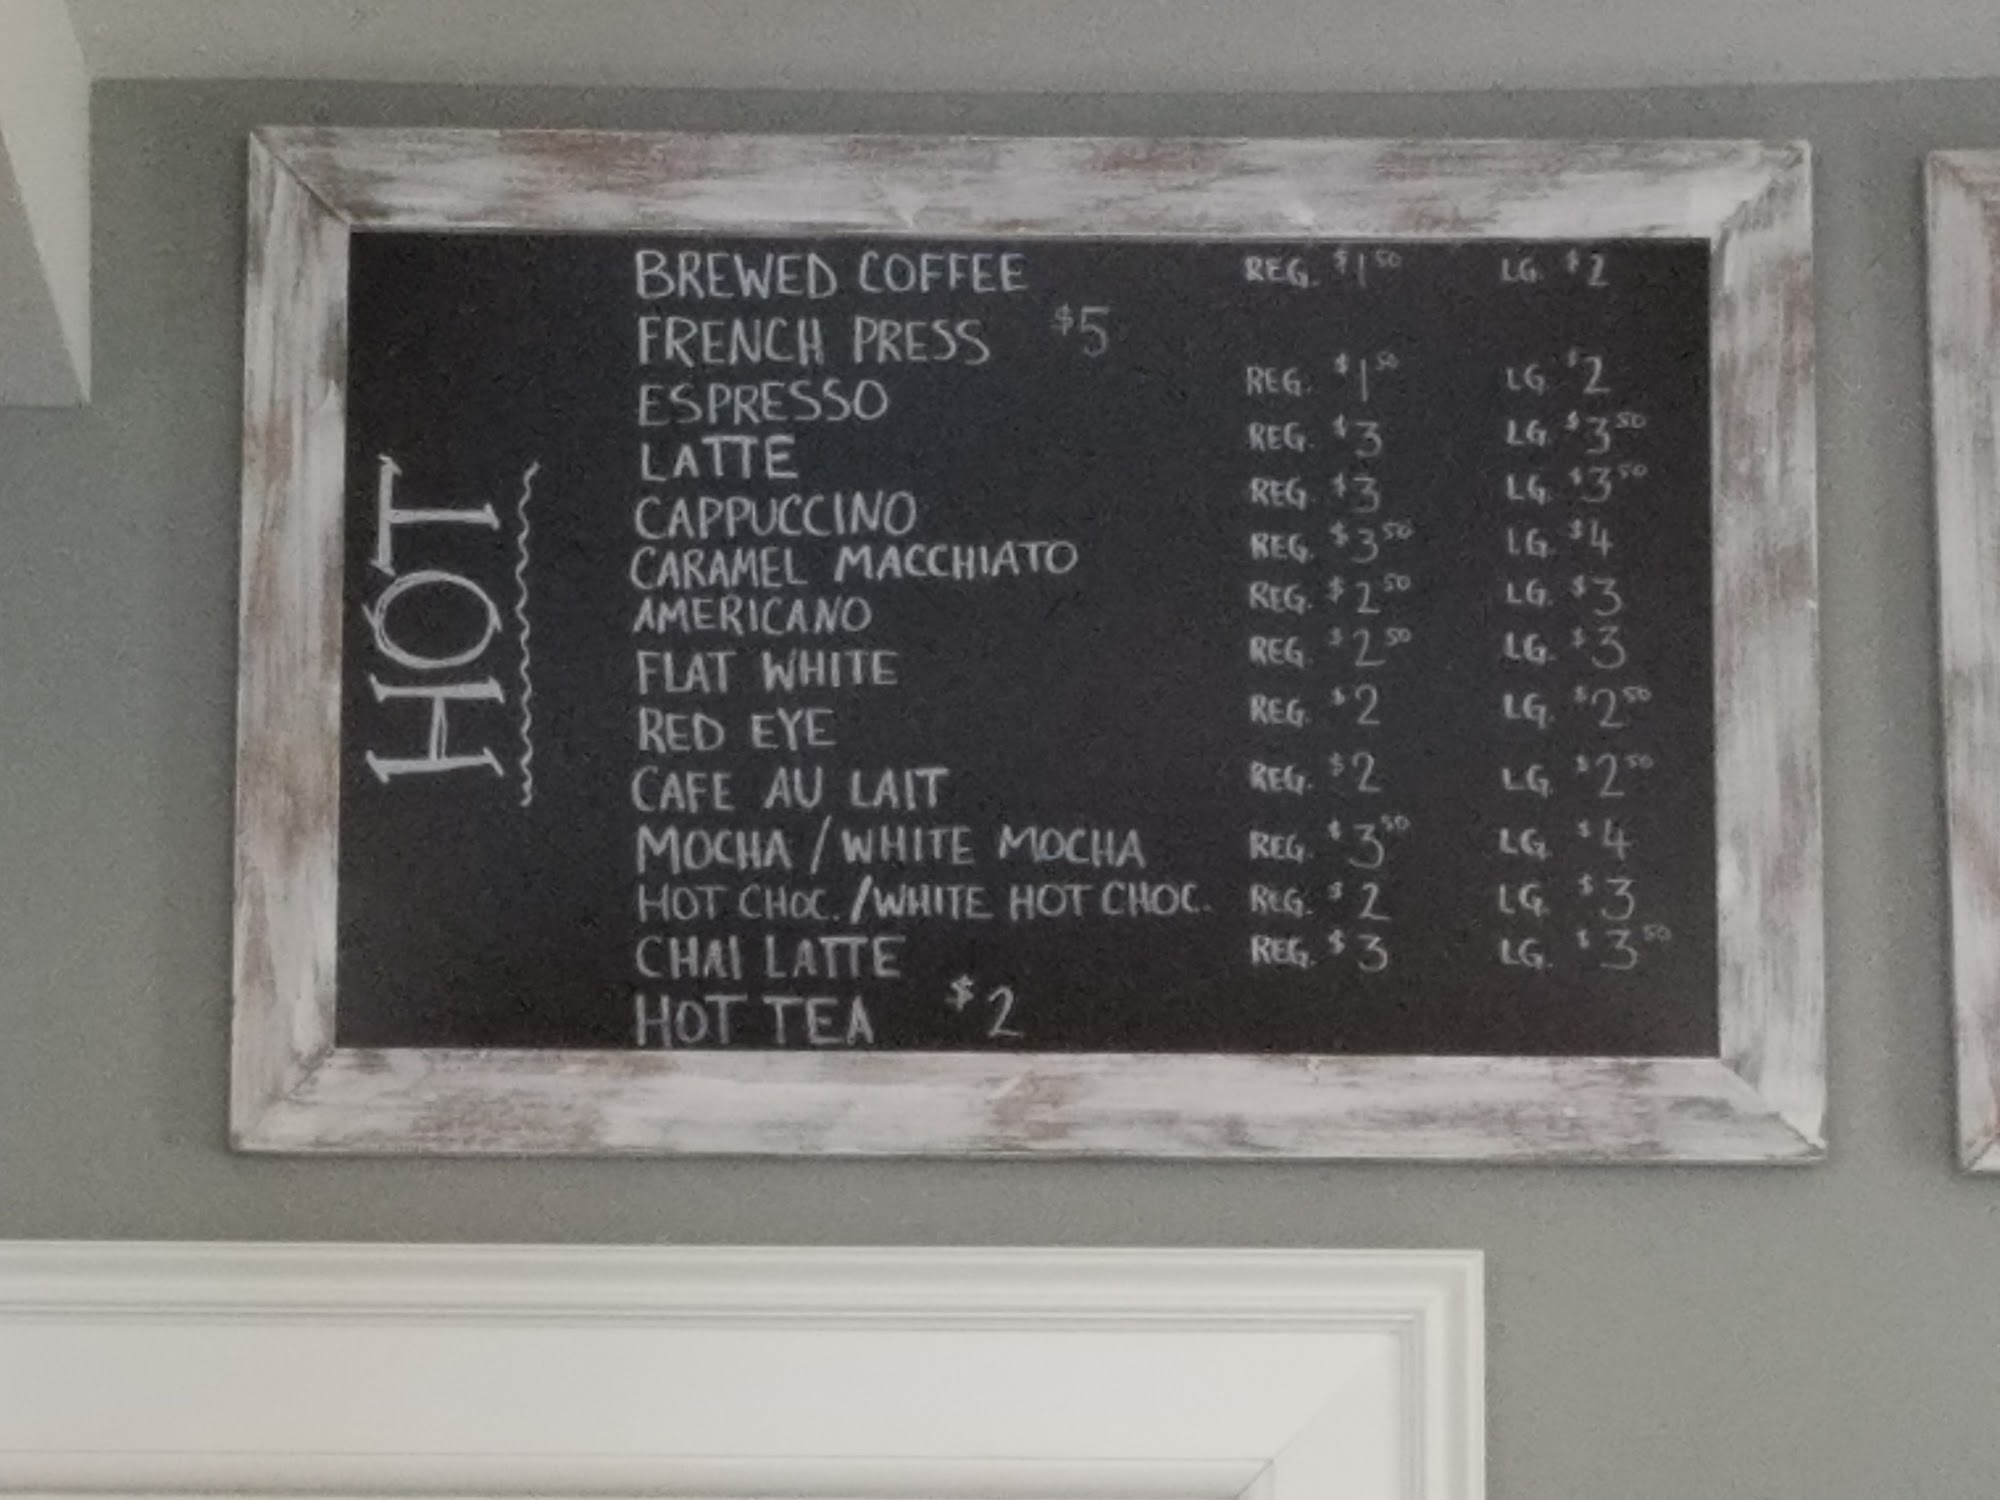 HOT
BREWED COFFEE REG. $1 50 LG. $2
FRENCH PRESS $5
ESPRESSO REG. $1 50 LG. $2
LATTE REG. $3 LG. $3 50
CAPPUCCINO REG. $3 LG. $3 50
CARAMEL MACCHIATO REG. $3 50 LG. $4
AMERICANO REG. $2 50 LG. $3
FLAT WHITE REG. $2 50 LG. $3
RED EYE REG. $2 LG. $2 50
CAFE AU LAIT REG. $2 LG. $2 50
MOCHA / WHITE MOCHA REG. $3 50 LG. $4
HOT CHOC. / WHITE HOT CHOC. REG. $2 LG. $3
CHAI LATTE REG. $3 LG. $3 50
HOT TEA $2